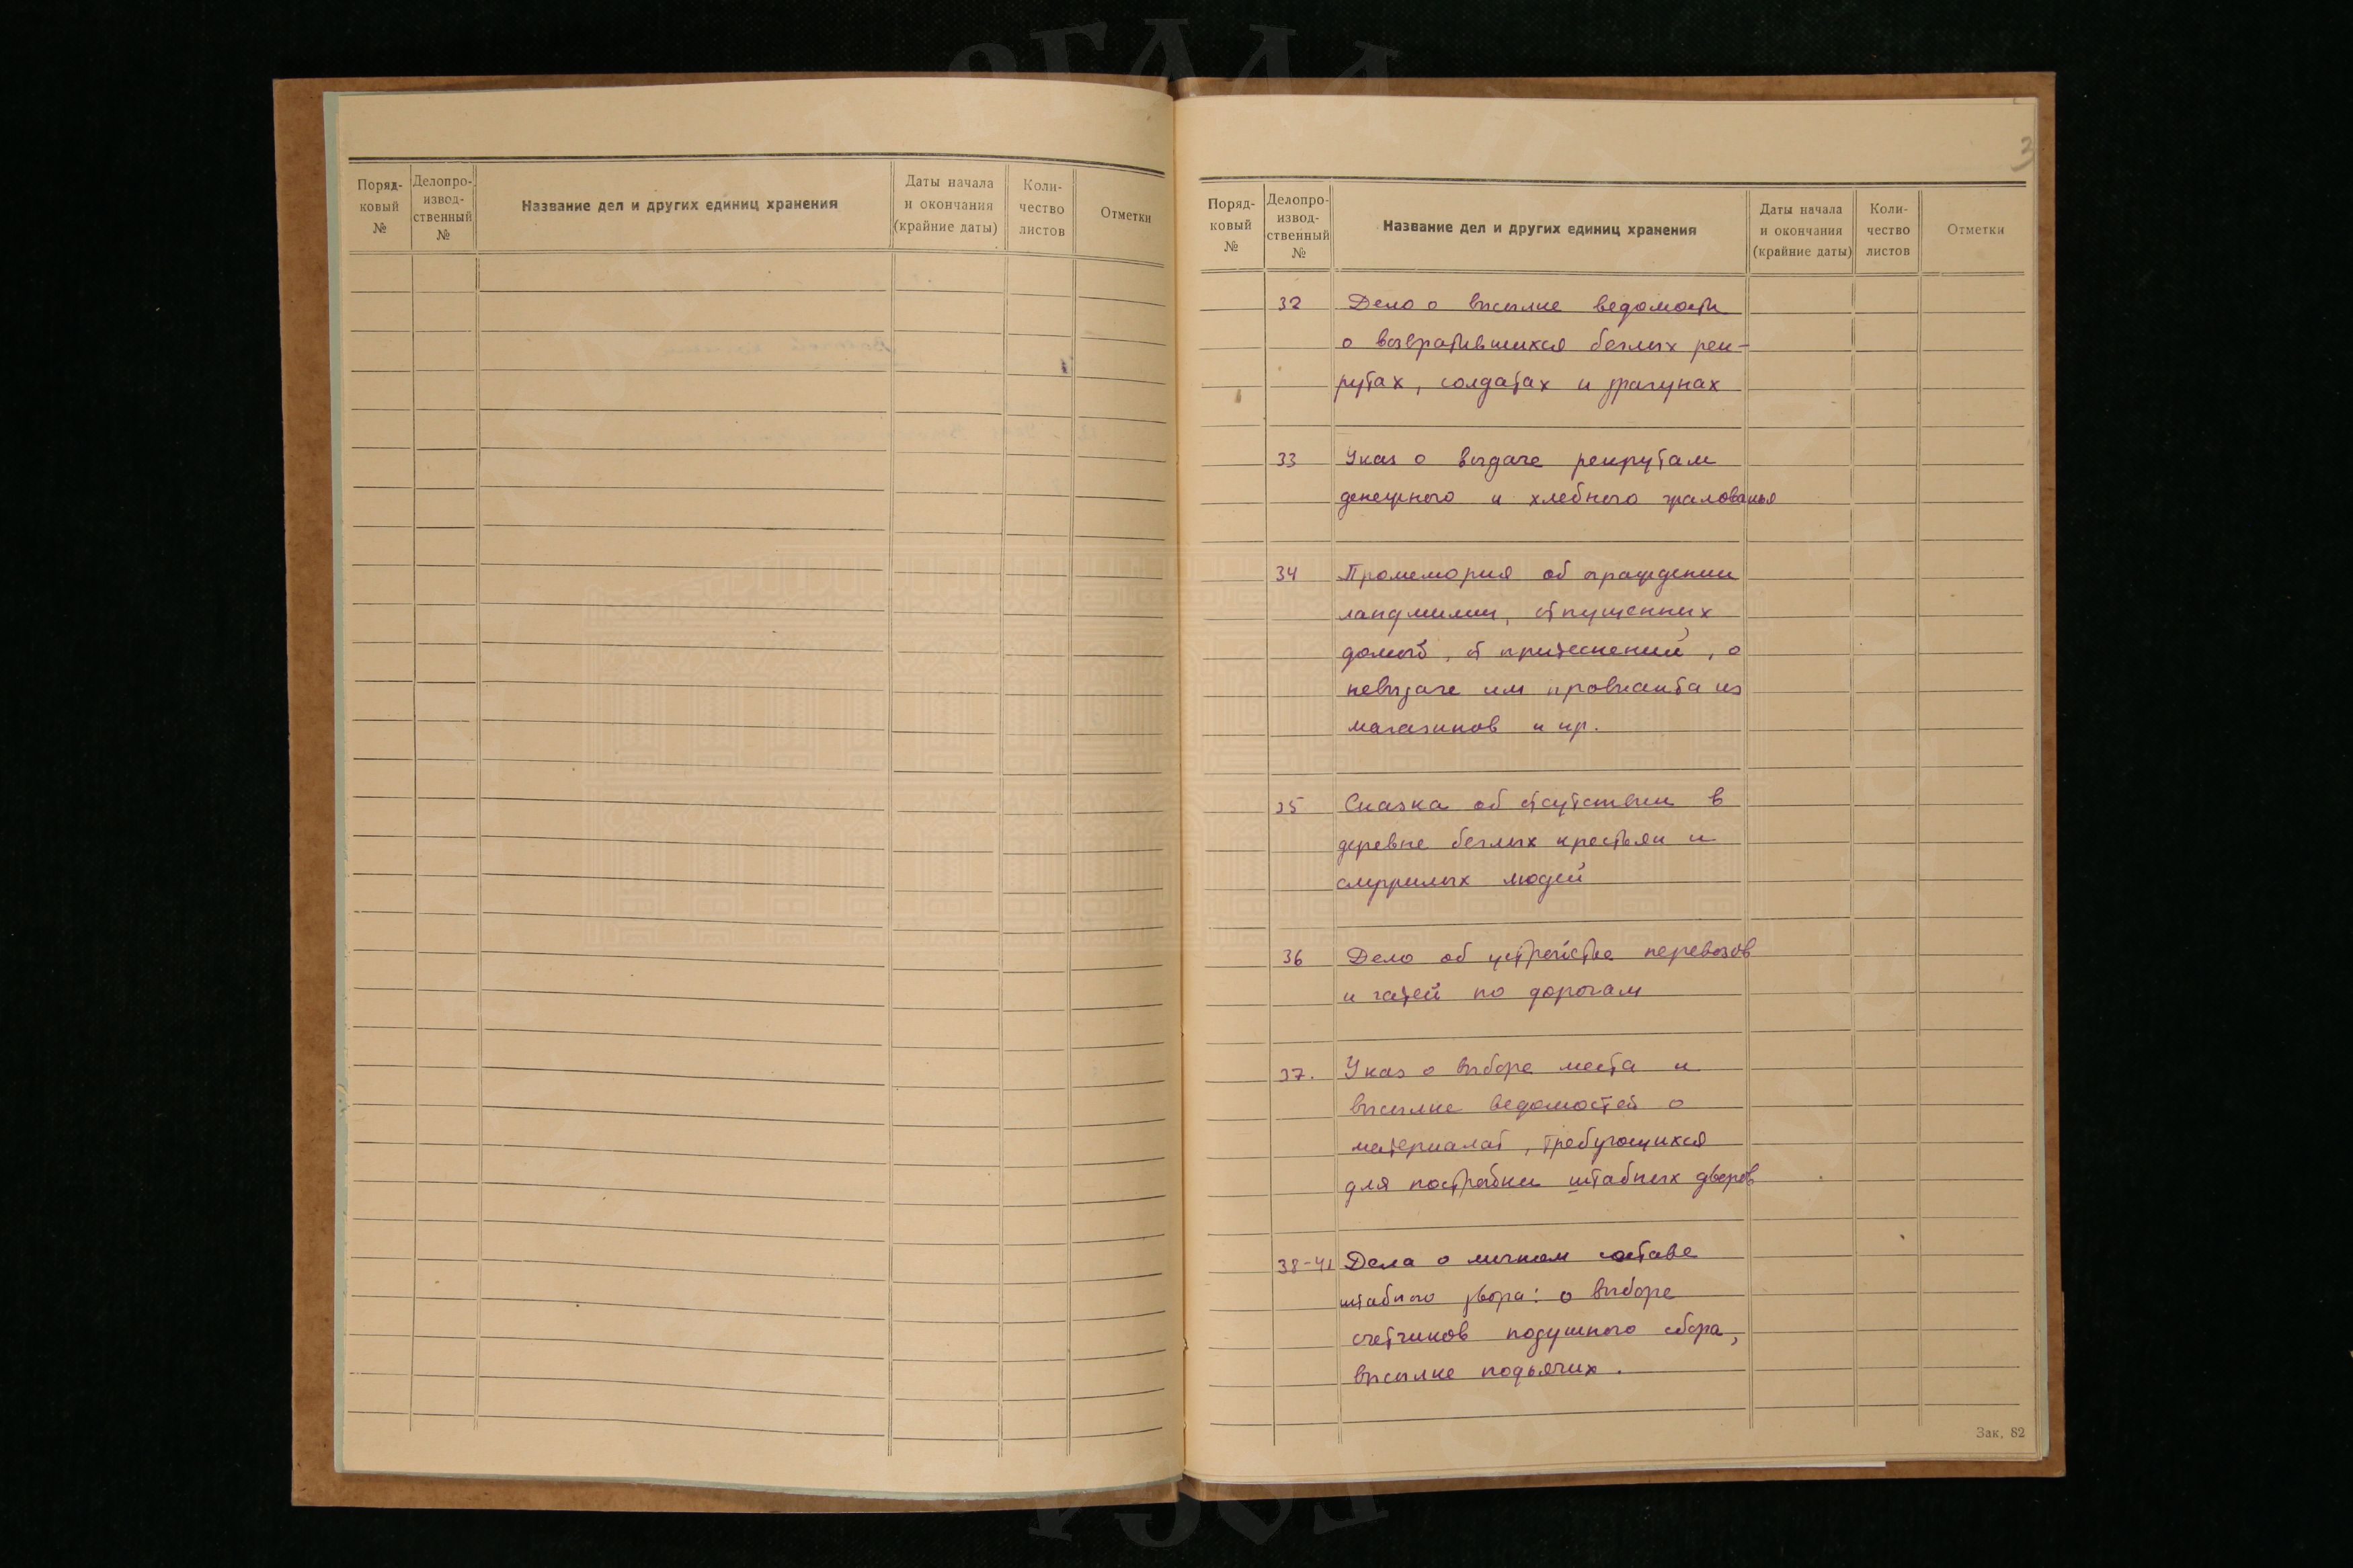 Поряд-
ковый
№
Делопро-
извод-
ственный
№
Название дел и других единиц хранения
Даты начала
и окончания
(крайние даты)
Коли-
чество
листов
Отметки
3
Поряд-
ковый
№
Делопро-
извод-
ственный
№
Название дел и других единиц хранения
Даты начала
и окончания
(крайние даты)
Коли-
чество
листов
Отметки
32 Дело о высылке ведомости
о возвратившихся беглых рек-
рутах, солдатах и драгунах
33 Указ о выдаче рекрутам
денежного и хлебного жалованья
34 Промемория об ограждении
ландмилии, отпущенных
домой, от притеснений, о
невыдаче им провианта из
магазинов и пр.
35 Сказка об отсутствии в
деревне беглых крестьян и
служилых людей
36 Дело об устройстве перевозов
и гатей по дорогам
37. Указ о выборе места и
высылке ведомостей о
материалах, требующихся
для постройки штабных дворов
38-41 Дела о личном составе
штабного двора: о выборе
счетчиков подушного сбора,
высылке подьячих.
Зак. 82